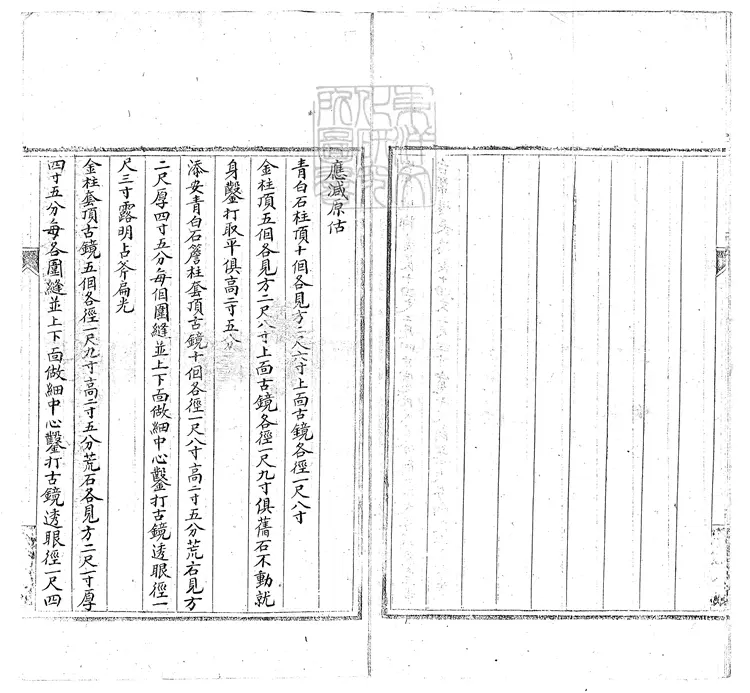 應減原估
青白石柱頂十個各見方二尺六寸上面古鏡各徑一尺八寸
金柱頂五個各見方二尺八寸上面古鏡各徑一尺九寸俱舊石不動就
身鑿打取平俱高二寸五分
添安青白石簷柱套頂古鏡十個各徑一尺八寸高二寸五分荒石見方
二尺厚四寸五分每個圍縫並上下面做細中心鑿打古鏡透眼徑一
尺三寸露明占斧扁光
金柱套頂古鏡五個各徑一尺九寸高二寸五分荒石各見方二尺一寸厚
四寸五分每各圍縫並上下面做細中心鑿打古鏡透眼徑一尺四